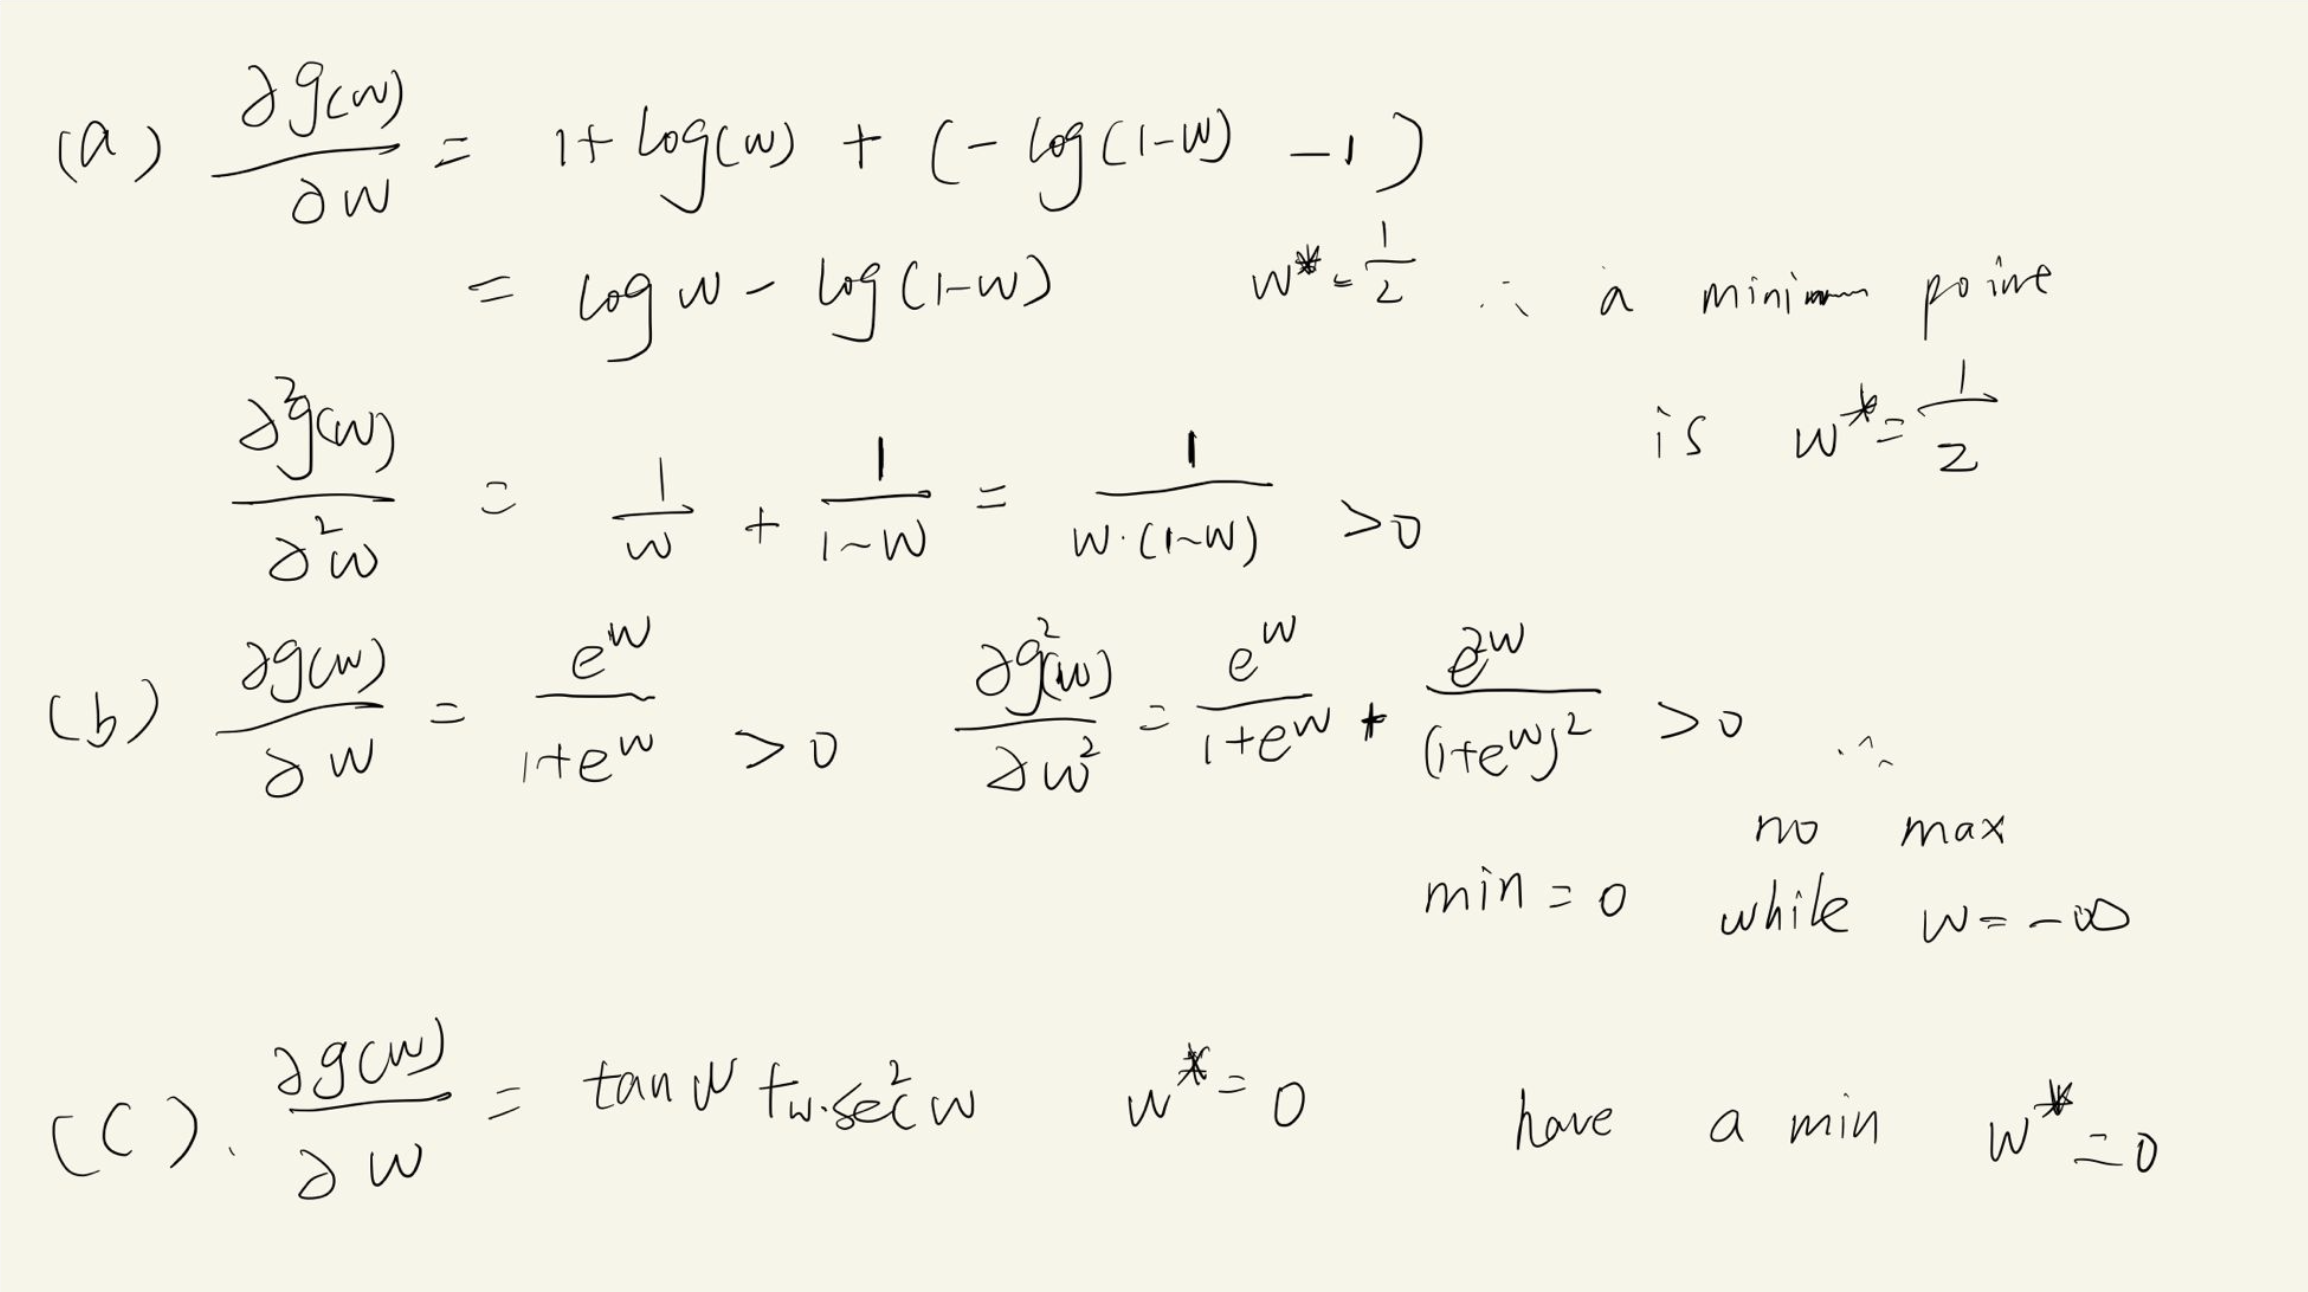 (a) ∂g(w)/∂w = 1 + log(w) + (- log(1-w) - 1)
= log w - log(1-w) w* = 1/2 ∴ a minimum point
is w* = 1/2
∂²g(w)/∂²w = 1/w + 1/(1-w) = 1/(w·(1-w)) >0
(b) ∂g(w)/∂w = e^w/(1+e^w) >0 ∂g²(w)/∂w² = e^w/(1+e^w) + e^w/(1+e^w)² >0 ∴
no max
min = 0 while w = -∞
(C). ∂g(w)/∂w = tan w + w·sec²w w* = 0 have a min w* = 0